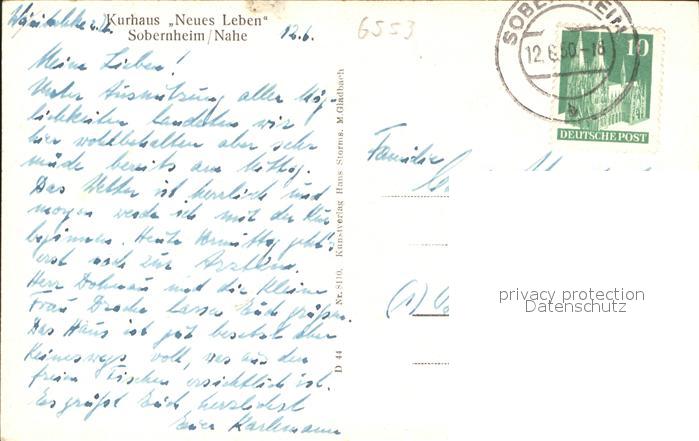 Kurhaus „Neues Leben"
Sobernheim/Nahe
12.6.
6553
Meine Lieben!
Unter Ausnützung aller Mög-
lichkeiten landeten wir
hier wohlbehalten aber sehr
müde bereits am Mittag.
Das Wetter ist herrlich und
morgen werde ich mit der Kur
beginnen. Heute Vormittag geht's
erst noch zur Ärztin.
Herr und die Kleine
Frau lassen Euch grüßen.
Das Haus ist gut besetzt aber
keineswegs voll, was aus den
freien Tischen ersichtlich ist.
Es grüßt Euch herzlichst
Euer Karlemann
D 44 Nr. 8110. Kunstverlag Hans Storms, M.Gladbach
SOBERNHEIM
12.6.50-18
b
10
DEUTSCHE POST
Familie
(1)
privacy protection
Datenschutz